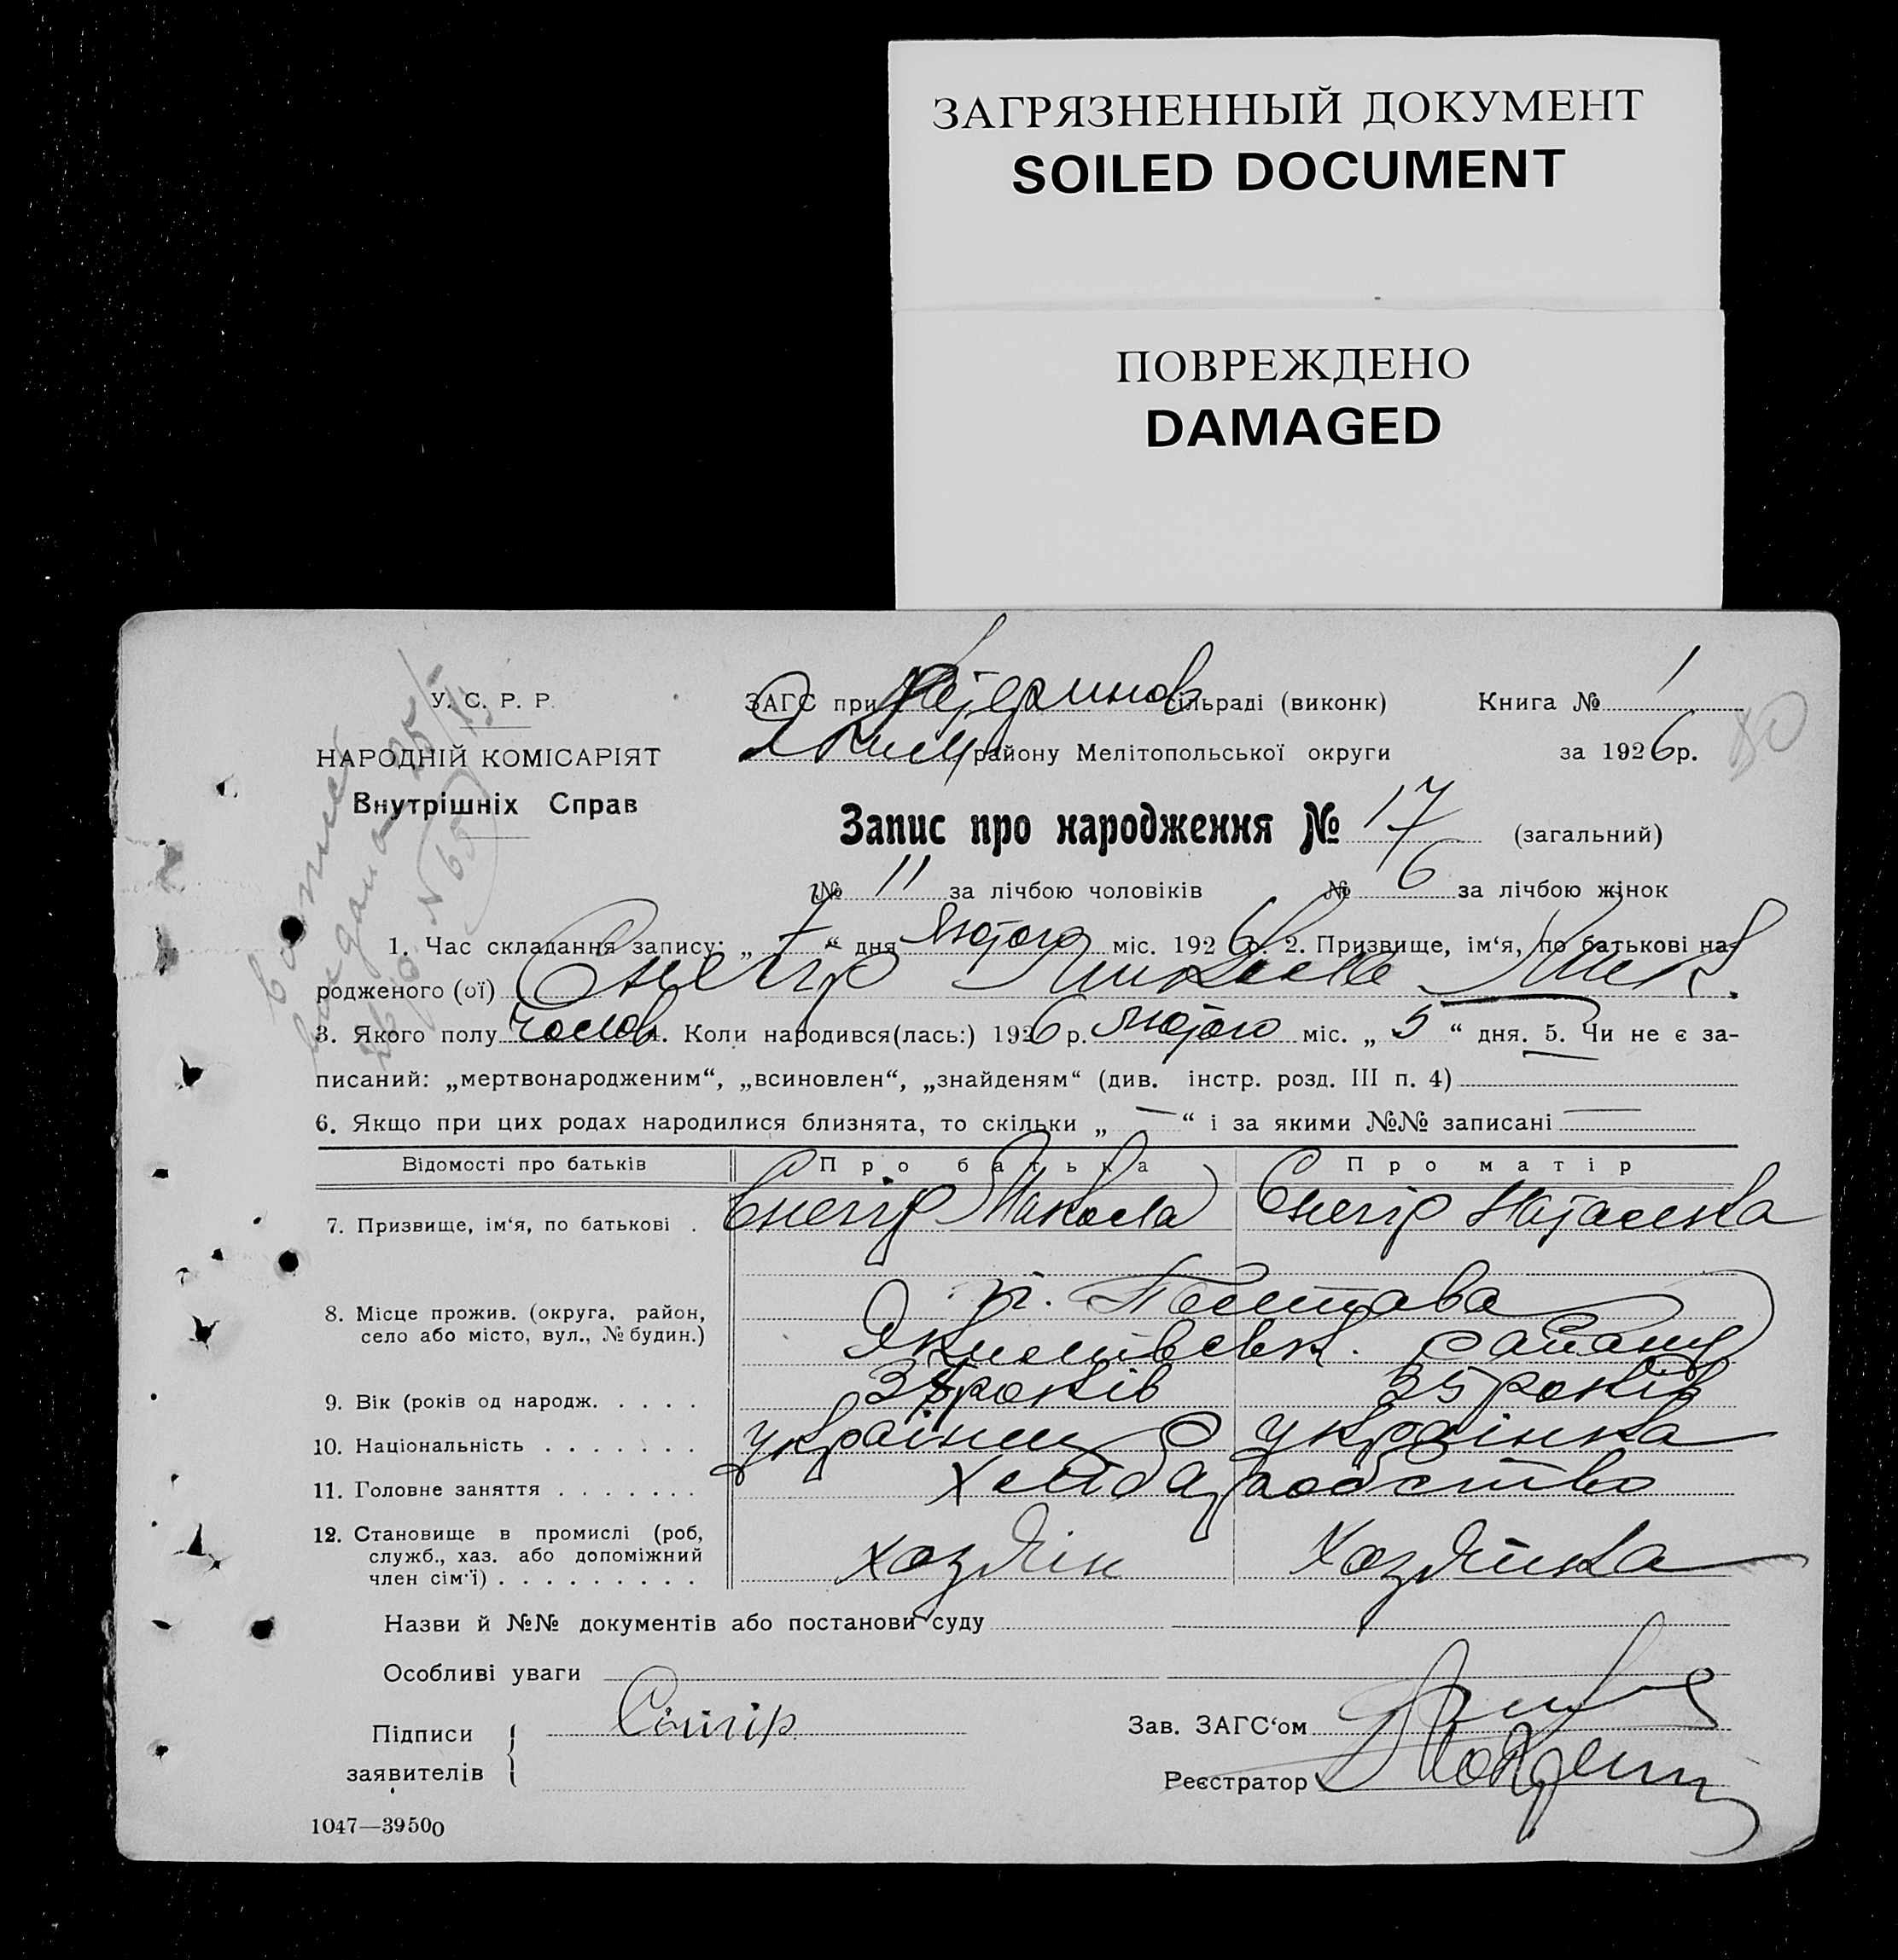 ЗАГРЯЗНЕННЫЙ ДОКУМЕНТ
SOILED DOCUMENT
ПОВРЕЖДЕНО
DAMAGED
У. С. Р. Р.
НАРОДНІЙ КОМІСАРІЯТ
Внутрішніх Справ
ЗАГС при сільраді (виконк)
Книга № 1
Яким району Мелітопольської округи
за 1926 р.
80
Запис про народження № 17 (загальний)
№ 11 за лічбою чоловіків № 6 за лічбою жінок
1. Час складання запису: „ 7 “ дня лютого міс. 1926 р. 2. Призвище, ім‘я, по батькові на-
родженого (ої) Снегір
3. Якого полу чолов 4. Коли народився(лась:) 1926 р. лютого міс. „ 5 “ дня. 5. Чи не є за-
писаний: „мертвонародженим“, „всиновлен“, „знайденям“ (див. інстр. розд. III п. 4)
6. Якщо при цих родах народилися близнята, то скільки „ — “ і за якими №№ записані —
Відомості про батьків Про батька Про матір
7. Призвище, ім‘я, по батькові . Снегір Микола Снегір Наталка
8. Місце прожив. (округа, район, Полтава
село або місто, вул., № будин.) Якимівськ. району
9. Вік (років од народж. . . . . років 35 років
10. Національність . . . . . . . українець українка
11. Головне заняття . . . . . . . хлібаробство
12. Становище в промислі (роб,
служб., хаз. або допоміжний
член сім‘ї) . . . . . . . . . хозяін хозяйка
Назви й №№ документів або постанови суду
Особливі уваги
Підписи Снігір
заявителів
Зав. ЗАГС‘ом
Реєстратор
1047—39500